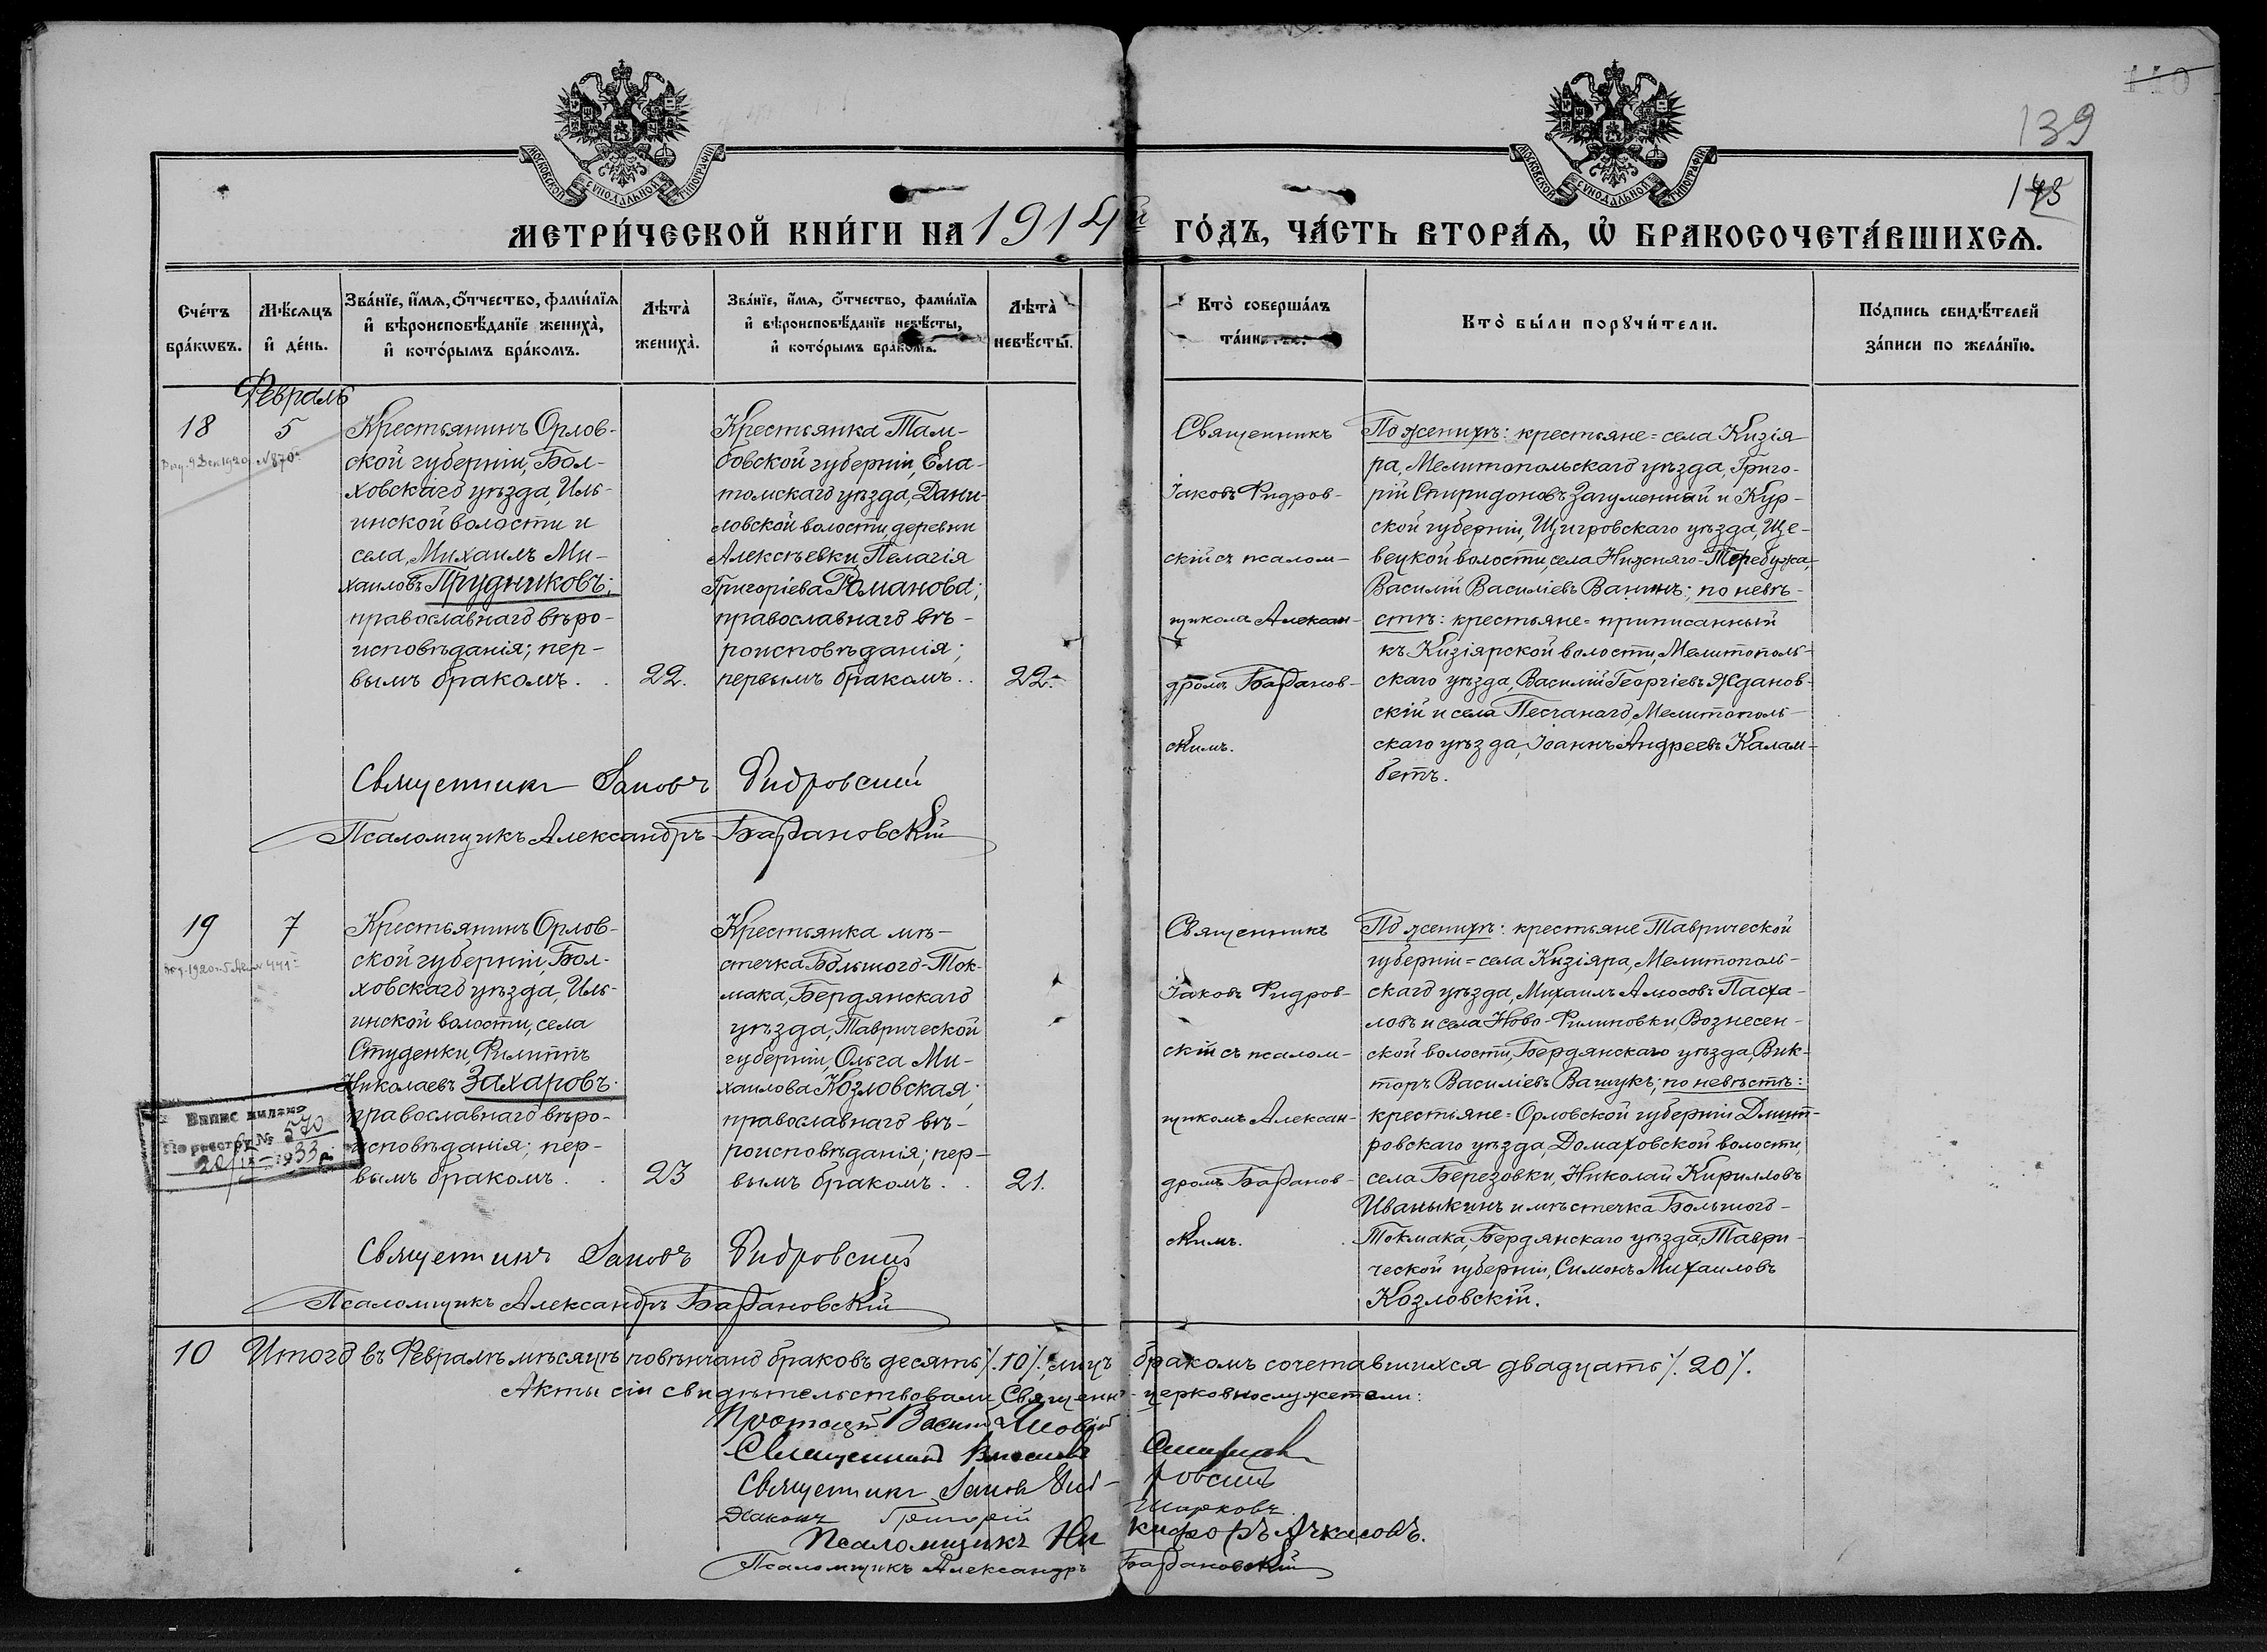 110
139
МОСКОВСКОЙ СѴНОДАЛЬНОЙ ТИПОГРАФІИ
МОСКОВСКОЙ СѴНОДАЛЬНОЙ ТИПОГРАФІИ
МЕТРИ́ЧЕСКОЙ КНИ́ГИ НА 1914й ГО́ДЪ, ЧА́СТЬ ВТОРА́Ѧ, Ѡ҆ БРАКОСОЧЕТА́ВШИХСѦ.
Сче́тъ бра́кѡвъ.
Мѣ́сяцъ и҆ де́нь.
Зва́нїе, и҆́мѧ, ѻ҆́тчество, фами́лїѧ
и҆ вѣроисповѣ́данїе жениха̀,
и҆ кото́рымъ бра́комъ.
Лѣта̀ жениха̀.
Зва́нїе, и҆́мѧ, ѻ҆́тчество, фами́лїѧ
и҆ вѣроисповѣ́данїе невѣ́сты,
и҆ кото́рымъ бра́комъ.
Лѣта̀ невѣ́сты.
Кто̀ соверша́лъ
Кто̀ бы́ли порꙋчи́тели.
По́дпись свидѣ́телей
за́писи по жела́нїю.
Февраль
18
5
Крестьянинъ Орлов-
ской губерніи, Бол-
ховскаго уѣзда, Иль-
инской волости и
села, Михаилъ Ми-
хаиловъ Прудниковъ;
православнаго вѣро-
исповѣданія; пер-
вымъ бракомъ. .
22.
Крестьянка Там-
бовской губерніи, Ела-
томскаго уѣзда, Дани-
ловской волости, деревни
Алексѣевки, Пелагія
Григоріева Романова;
православнаго вѣ-
роисповѣданія;
первымъ бракомъ. .
22.
Священникъ
Іаковъ Фидров-
скій съ псалом-
щикомъ Алексан-
дромъ Баранов-
скимъ.
По женихѣ: крестьяне= села Кизія
ра, Мелитопольскаго уѣзда, Григо-
рій Спиридоновъ Загуменный и Кур-
ской губерніи, Щигровскаго уѣзда, Ще-
вецкой волости, села Нижняго-Теребужа,
Василій Василіевъ Ванинъ; по невѣ-
стѣ: крестьяне= приписанный
къ Кизіярской волости, Мелитополь-
скаго уѣзда, Василій Георгіевъ Жданов-
скій и села Песчанаго, Мелитополь-
скаго уѣзда, Іоаннъ Андреевъ Калам-
бетъ.
Священникъ Іаковъ Фидровскій
Псаломщикъ Александръ Барановскій
19
7
Крестьянинъ Орлов-
ской губерніи, Бол-
ховскаго уѣзда, Иль-
инской волости, села
Студенки, Филиппъ
Николаевъ Захаровъ;
православнаго вѣро-
исповѣданія; пер-
вымъ бракомъ . .
23
Крестьянка мѣ-
стечка Большого-Ток-
мака, Бердянскаго
уѣзда, Таврической
губерніи, Ольга Ми-
хаилова Козловская;
православнаго вѣ-
роисповѣданія; пер-
вымъ бракомъ. .
21.
Священникъ
Іаковъ Фидров-
скій съ псалом-
щикомъ Алексан-
дромъ Баранов-
скимъ.
По женихѣ: крестьяне Таврической
губерніи= села Кизіяра, Мелитополь-
скаго уѣзда, Михаилъ Амосовъ Пасха-
ловъ и села Ново-Филиповки, Вознесен-
ской волости, Бердянскаго уѣзда, Вик-
торъ Василіевъ Вашукъ; по невѣстѣ:
крестьяне= Орловской губерніи Дмит-
ровскаго уѣзда, Домаховской волости,
села Березовки, Николай Кирилловъ
Иваныкинъ и мѣстечка Большого-
Токмака, Бердянскаго уѣзда, Таври-
ческой губерніи, Симонъ Михаиловъ
Козловскій.
По реестру № 570
20/IX-1933 р.
Священникъ Іаковъ Фидровскій
Псаломщикъ Александръ Барановскій
10 Итого въ Февралѣ мѣсяцѣ повѣнчано браковъ десять ٪ 10 ٪; лицъ бракомъ сочетавшихся двадцать ٪ 20 ٪.
Акты сіи свидѣтельствовали Священно-церковнослужетели:
Священникъ Іаковъ Фид-ровскій
Діаконъ Григорій Шарковъ
Псаломщикъ Никифоръ Ачкасовъ.
Псаломщикъ Александръ Барановскій